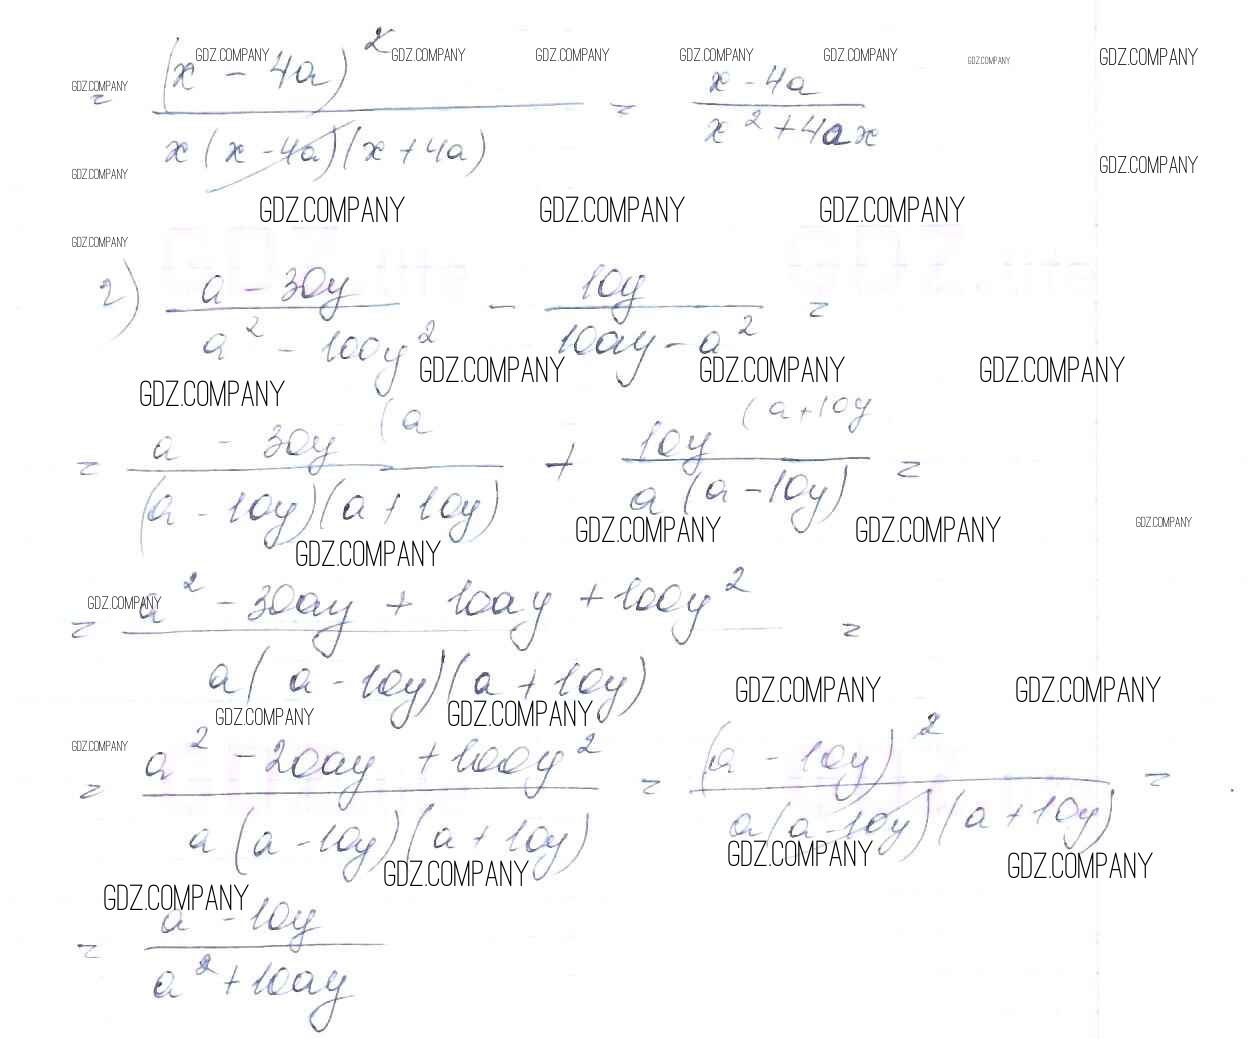 GDZ.COMPANY GDZ.COMPANY GDZ.COMPANY GDZ.COMPANY GDZ.COMPANY GDZ.COMPANY GDZ.COMPANY
GDZ.COMPANY
= (x - 4a)² / x(x - 4a)(x + 4a) = x - 4a / x² + 4ax
GDZ.COMPANY GDZ.COMPANY
GDZ.COMPANY GDZ.COMPANY GDZ.COMPANY
GDZ.COMPANY
2) a - 30y / a² - 100y² - 10y / 10ay - a² =
GDZ.COMPANY GDZ.COMPANY GDZ.COMPANY GDZ.COMPANY
= a - 30y (a / (a - 10y)(a + 10y) + 10y (a + 10y / a(a - 10y) =
GDZ.COMPANY GDZ.COMPANY GDZ.COMPANY GDZ.COMPANY
GDZ.COMPANY
= a² - 30ay + 10ay + 100y² / a(a - 10y)(a + 10y) =
GDZ.COMPANY GDZ.COMPANY GDZ.COMPANY GDZ.COMPANY
GDZ.COMPANY
= a² - 20ay + 100y² / a(a - 10y)(a + 10y) = (a - 10y)² / a(a - 10y)(a + 10y) =
GDZ.COMPANY GDZ.COMPANY GDZ.COMPANY GDZ.COMPANY
= a - 10y / a² + 10ay